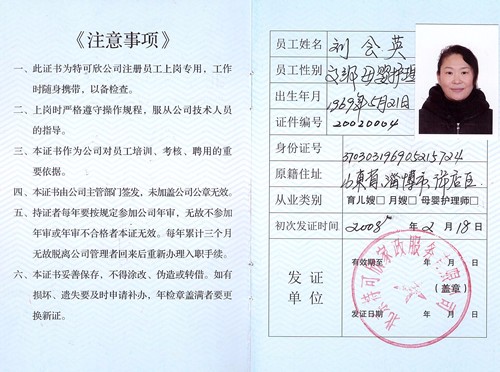 《注意事项》
一、此证书为特可欣公司注册员工上岗专用，工作
时随身携带，以备检查。
二、上岗时严格遵守操作规程，服从公司技术人员
的指导。
三、本证书作为公司对员工培训、考核、聘用的重
要依据。
四、本证书由公司主管部门签发，未加盖公司公章无效。
五、持证者每年要按规定参加公司年审，无故不参加
年审或年审不合格者本证无效。每年累计三个月
无故脱离公司管理者回来后重新办理入职手续。
六、本证书妥善保存，不得涂改、伪造或转借。如有
损坏、遗失要及时申请补办，年检章盖满者要更
换新证。
员工姓名 刘会英
员工性别 女 母婴护理
出生年月 1969年5月21日
证件编号 20020004
身份证号 370303196905215724
原籍住址 山东省淄博市
从业类别 育儿嫂□ 月嫂□ 母婴护理师□
初次发证时间 2008年2月18日
发证单位
有效期至 年 月 日
（盖章）
发证日期 年 月 日
北京特可欣家政服务有限公司